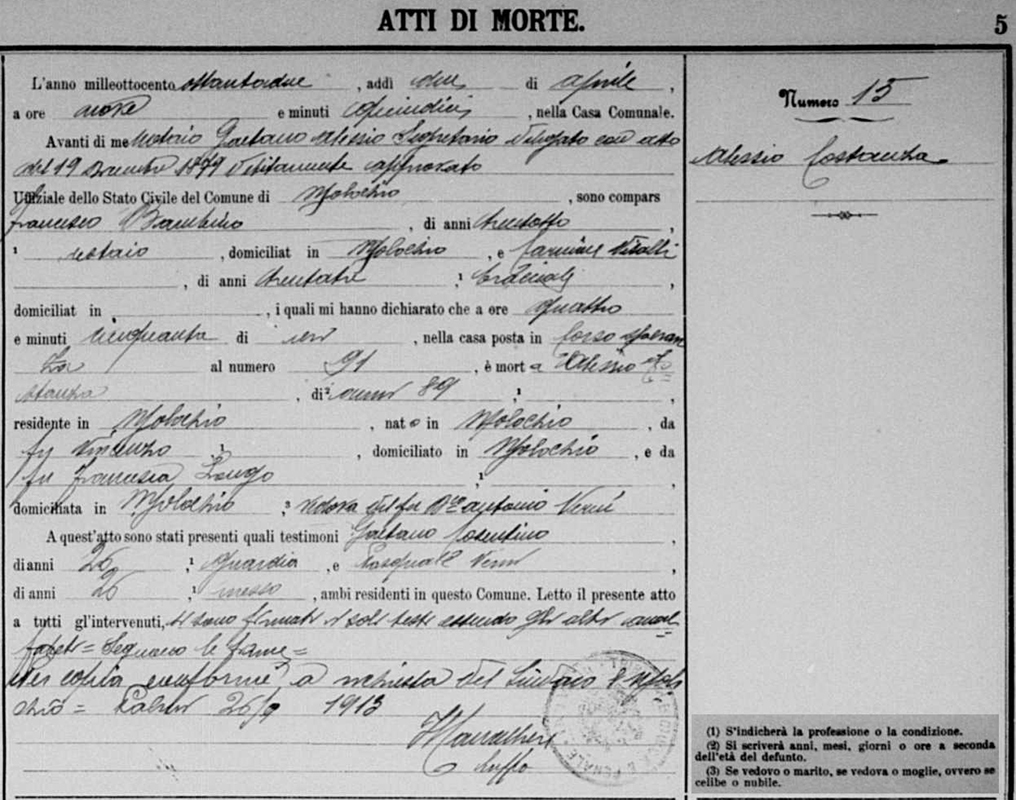 ATTI DI MORTE.
5
L'anno milleottocento ottantadue, addì due di Aprile,
a ore nove e minuti quindici, nella Casa Comunale.
Avanti di me Notaio Gaetano Alessio Segretario delegato con atto
del 19 1879 debitamente approvato
Uffiziale dello Stato Civile del Comune di Molochio, sono compars
Francesco Bambino, di anni trentotto,
¹ notaio, domiciliat in Molochio, e Carmine Vitalli
, di anni trentatre, ¹
domiciliat in , i quali mi hanno dichiarato che a ore quattro
e minuti cinquanta di ieri, nella casa posta in Corso Speran
za al numero 91, è mort a Alessio Co
stanza, di² anni 89, ¹ ,
residente in Molochio, nat o in Molochio, da
fu Vincenzo ¹ , domiciliato in Molochio, e da
fu Francesca Longo ¹ ,
domiciliata in Molochio, ³ vedova del fu Antonio Verni
A quest'atto sono stati presenti quali testimoni Gaetano Cosentino,
di anni 26, ¹ guardia, e Pasquale Verni,
di anni 26, ¹ messo, ambi residenti in questo Comune. Letto il presente atto
a tutti gl'intervenuti, si sono firmati i soli testi essendo gli altri anal
fabeti = Seguono le firme =
Per copia conforme a richiesta del Sindaco di Molo
chio = Palmi 26/9 1913
Numero 15
Alessio Costanza
(1) S'indicherà la professione o la condizione.
(2) Si scriverà anni, mesi, giorni o ore a seconda
dell'età del defunto.
(3) Se vedovo o marito, se vedova o moglie, ovvero se
celibe o nubile.